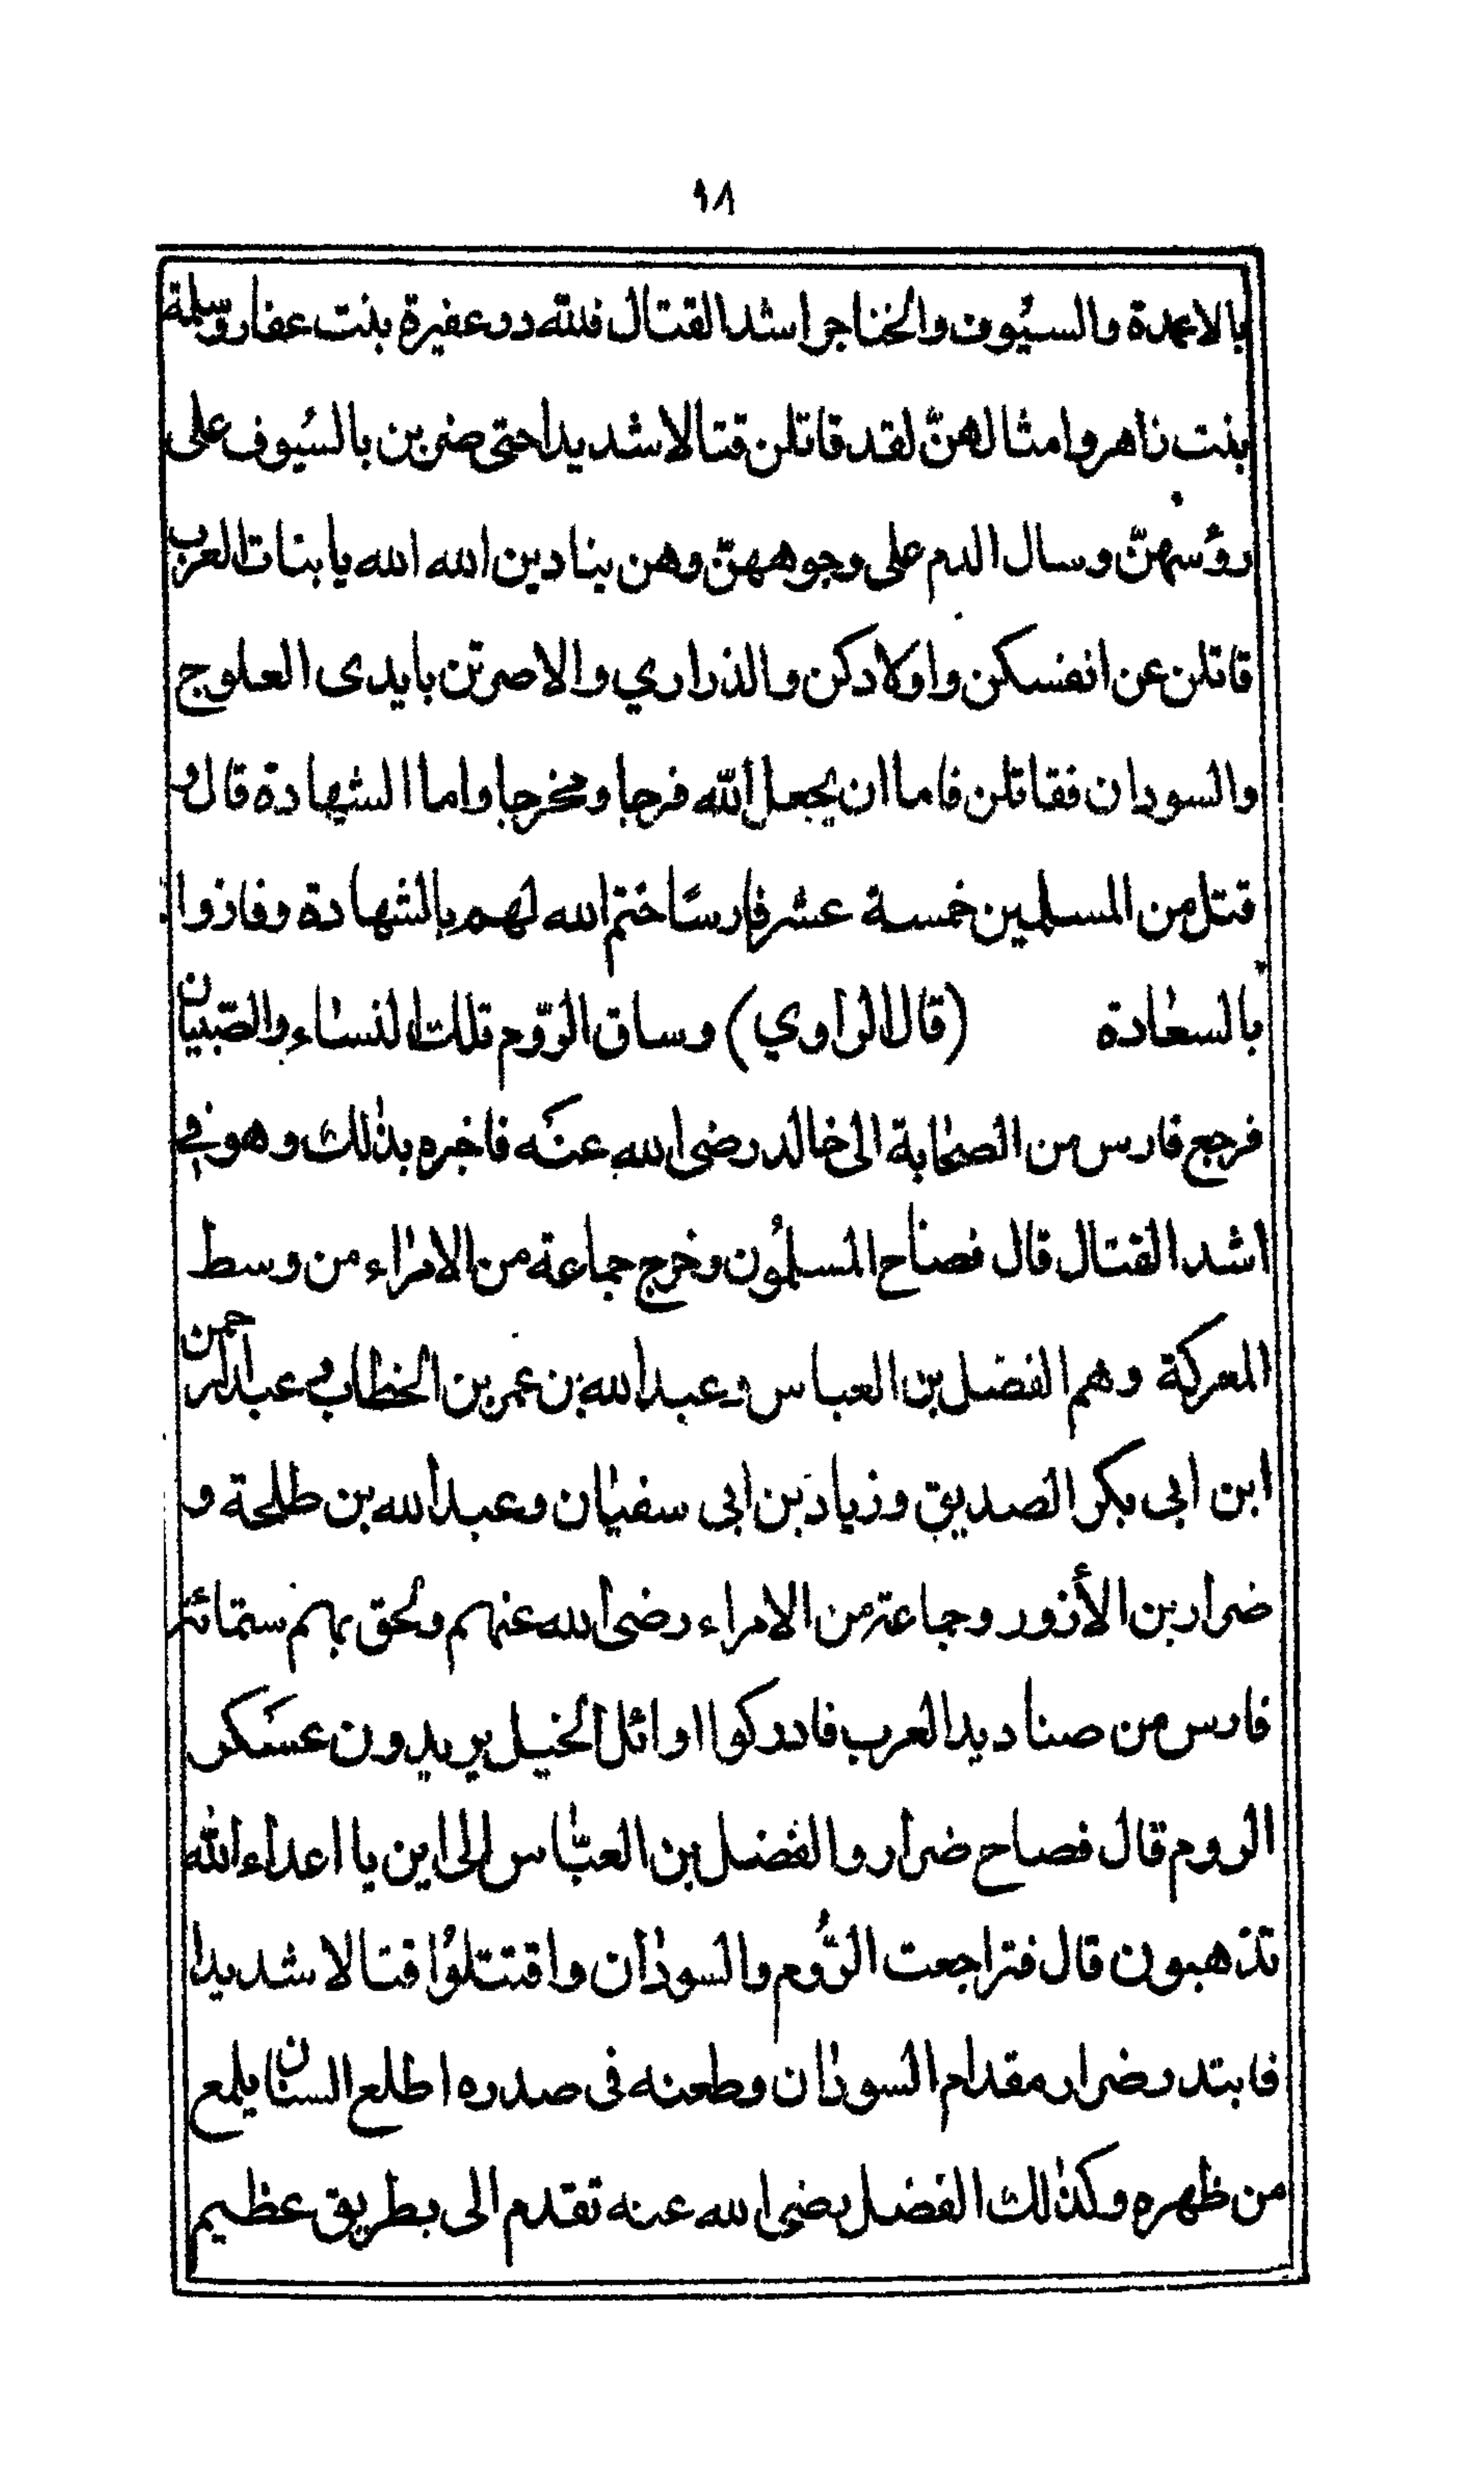 ٩٨
بالاعمدة والسيُوف والخناجر اشد القتال فللّه در عفيرة بنت عفار وسلمة
بنت زاهر وامثالهنّ لقد قاتلن قتالا شديدا حتى ضربن بالسُيوف على
رؤسهنّ وسال الدم على وجوههنّ وهن ينادين الله الله يا بنات العرب
قاتلن عن انفسكن واولادكن والذراري والاصرتن بايدى العلوج
والسودان فقاتلن فاما ان يجعل اللّه فرجا ومخرجا واما الشهادة قال و
قتل من المسلمين خمسة عشر فارسًا ختم الله لهم بالشهادة وفازوا
بالسعادة (قال الراوي) وساق الرّوم تلك النساء والصّبيان
فرجع فارس من الصحابة الى خالد رضى الله عنه فاخبره بذلك وهو في
اشد القتال قال فصاح المسلمُون وخرج جماعة من الامراء من وسط
المعركة وهم الفضل بن العباس وعبد الله بن عمر بن الخطاب وعبد الرحمن
ابن ابى بكر الصديق وزياد بن ابى سفيان وعبد الله بن طلحة و
ضرار بن الأزور وجماعة من الامراء رضى الله عنهم ولحق بهم ستمائة
فارس من صناديد العرب فادركوا اوائل الخيل يريدون عسكر
الروم قال فصاح ضرار والفضل بن العبّاس الى اين يا اعداء الله
تذهبون قال فتراجعت الرُّوم والسودان واقتتلوُا قتالا شديدا
فابتدر ضرار مقدام السودان وطعنه فى صدره اطلع السنان يلمع
من ظهره وكذلك الفضل رضى الله عنه تقدم الى بطريق عظيم